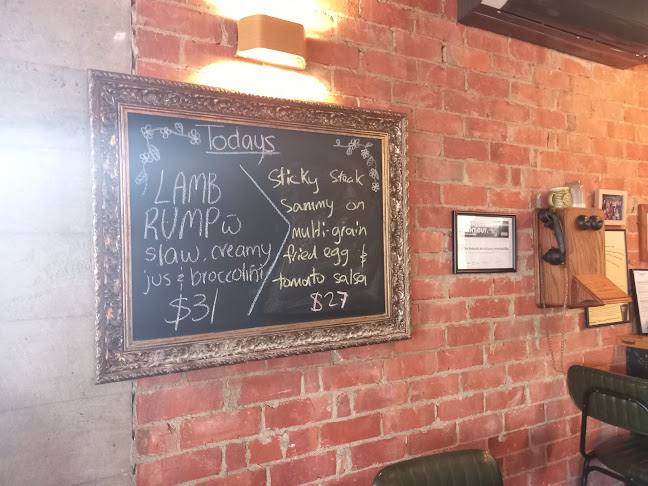 Todays
LAMB
RUMP w̅
slaw, creamy
jus & broccolini
$31
Sticky Steak
Sammy on
multi-grain
fried egg &
tomato salsa
$27